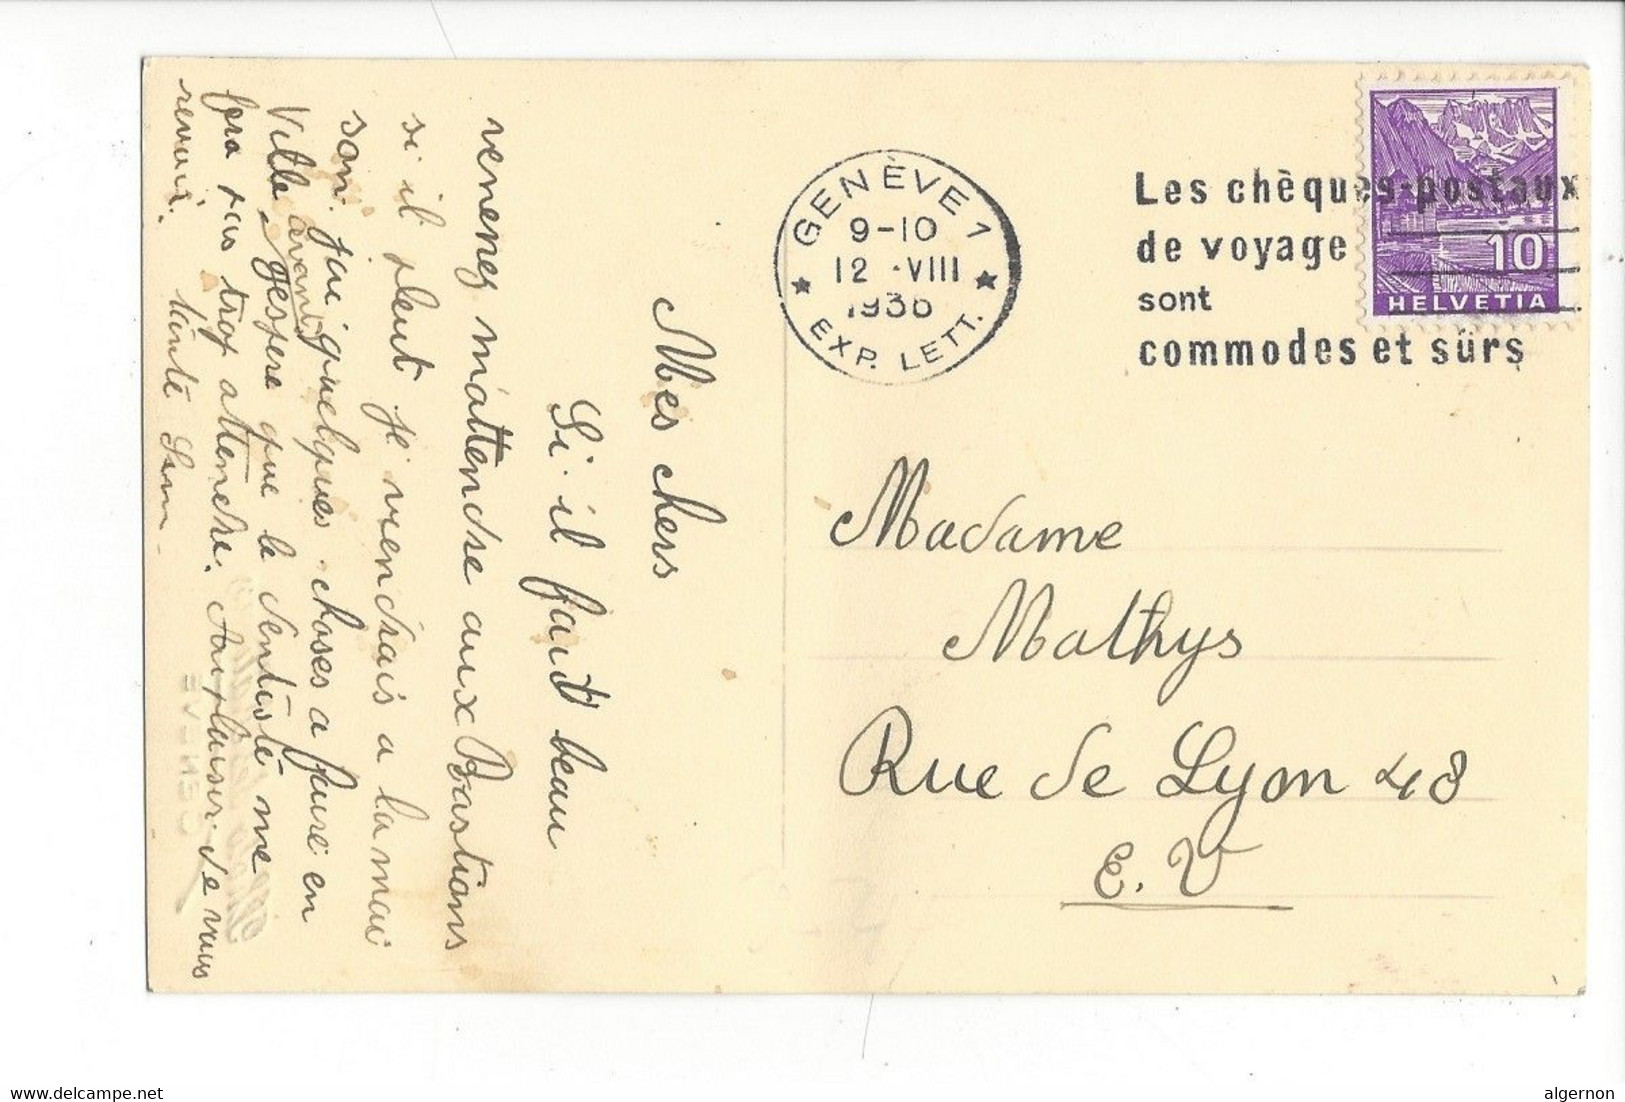 Mes chers
Si il fait beau
venenez m'attendre aux Bastions
si il pleut je viendrais a la mai
son. J'ai quelques choses a faire en
Ville avant
J'espere que le dentiste me
fera pas trop attendre. Au plaisir de vous
revoir.
GENÈVE 1
9-10
12 .VIII
1936
EXP. LETT.
Les chèques-postaux
de voyage
sont
commodes et sürs
10
HELVETIA
Madame
Mathys
Rue de Lyon 48
E. V
GENEVE
www.delcampe.net
algernon